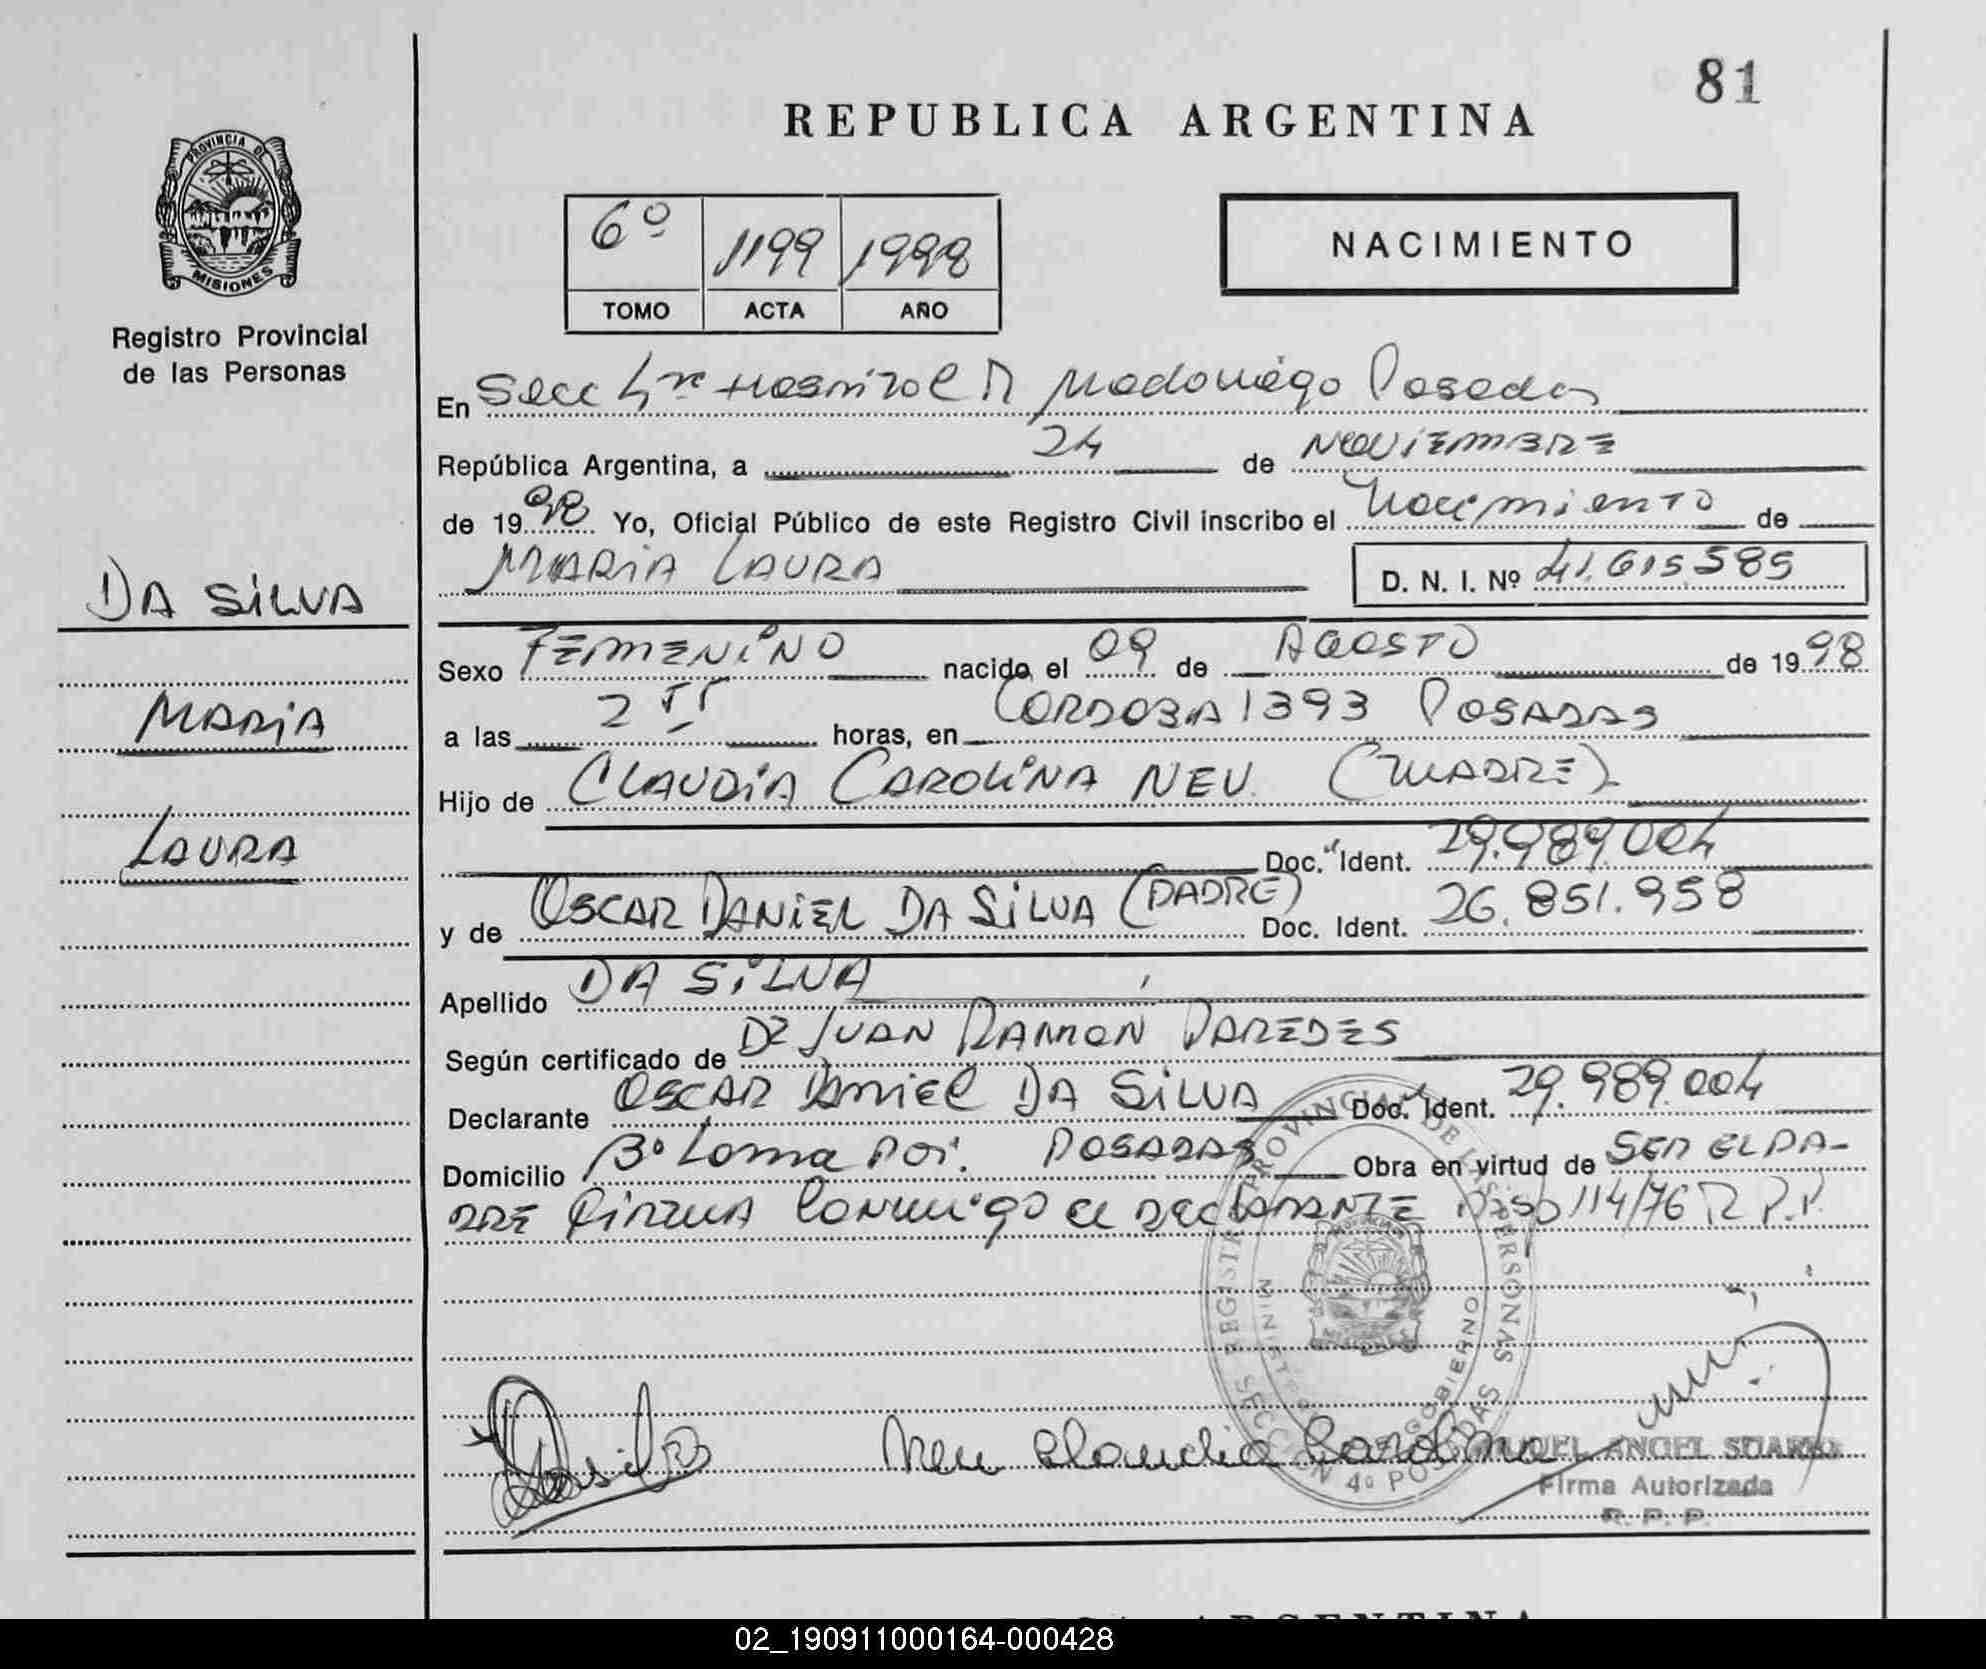 81
REPUBLICA ARGENTINA
PROVINCIA DE
MISIONES
Registro Provincial
de las Personas
6º 1199 1998
TOMO ACTA AÑO
NACIMIENTO
En Secc 4ta Hospital R Madariaga Posadas
República Argentina, a 24 de NOVIEMBRE
de 1998 Yo, Oficial Público de este Registro Civil inscribo el Nacimiento de
MARIA LAURA D. N. I. Nº 41.615.585
DA SILVA
MARIA
LAURA
Sexo FEMENINO nacido el 09 de AGOSTO de 1998
a las 2 horas, en CORDOBA 1393 POSADAS
Hijo de CLAUDIA CAROLINA NEU (MADRE)
Doc. Ident. 29.989.004
y de OSCAR DANIEL DA SILVA (PADRE) Doc. Ident. 26.851.958
Apellido DA SILVA
Según certificado de DE JUAN RAMON PAREDES
Declarante OSCAR DANIEL DA SILVA Doc. Ident. 29.989.004
Domicilio Bº Loma Poi. POSADAS Obra en virtud de SER EL PA-
DRE FIRMA Conmigo el DECLARANTE Disp 114/76 R.P.P.
REGISTRO PROVINCIAL DE LAS PERSONAS
MINISTERIO DE GOBIERNO
SECCION 4º POSADAS
Neu Claudia Carolina
MIGUEL ANGEL SUAREZ
Firma Autorizada
R. P. P.
02_190911000164-000428